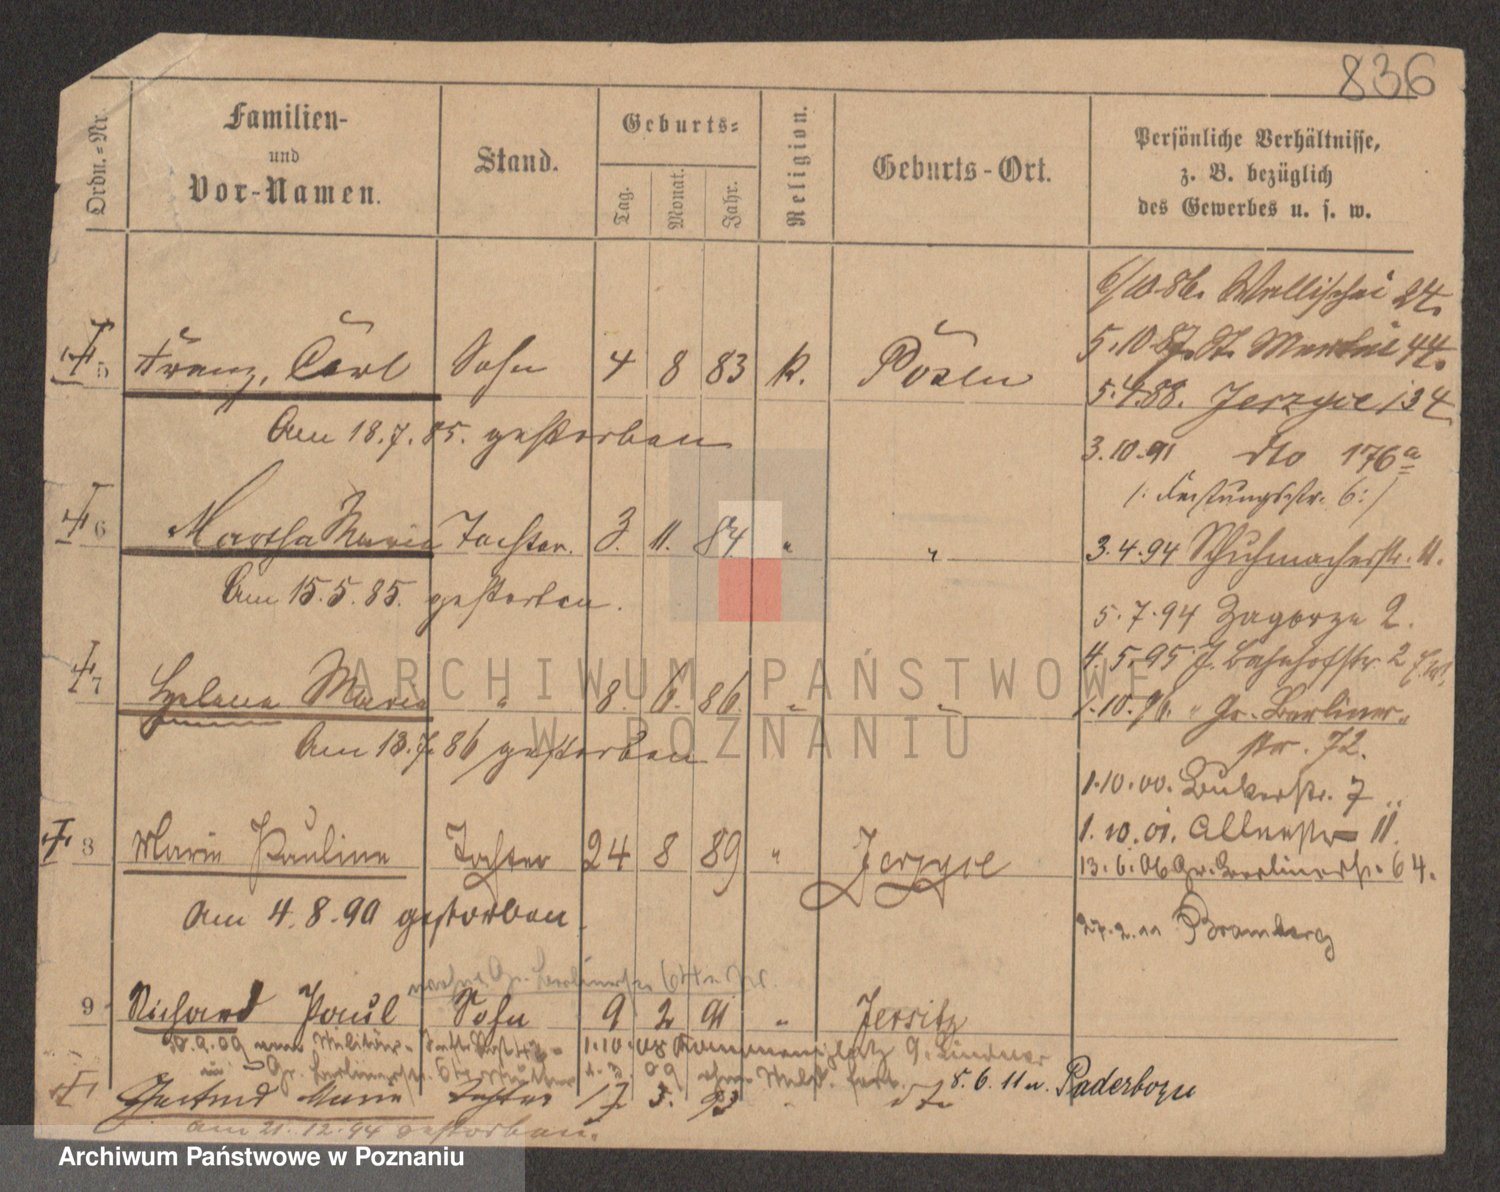 836
Ordn.-Nr.
Familien-
und
Vor-Namen.
Stand.
Geburts-
Tag.
Monat.
Jahr.
Religion.
Geburts-Ort.
Persönliche Verhältnisse,
z. B. bezüglich
des Gewerbes u. s. w.
6/10 86. Wallischei 24.
5 Franz, Carl Sohn 4 8 83 k. Posen
5.10.87. St. Martin 44.
5.4.88. Jerzyce 134
Am 18.7.85. gestorben
3.10.91 dto 176a
/: Festungsstr. 6 :/
6 Martha Maria Tochter. 3. 11. 84 " "
3.4.94 Schuhmacherstr. 11.
Am 15.5.85. gestorben.
5.7.94 Zagorze 2.
4.5.95 J. Bahnhofstr. 2
7 Helene Maria " 8. 6. 86. " "
1.10.96. " Gr. Berliner-
str. 72.
Am 13.7.86 gestorben
1.10.00. Bukerstr. 7
8 Marie Pauline Tochter 24 8 89 " Jerzyce
1.10.01. Alleestr 11.
13.6.06 Gr. Berlinerstr. 64.
Am 4.8.90 gestorben.
Bromberg
Gr. Berlinerstr. 64
9 Richard Paul Sohn 9 2 91 " Jersitz
Militär-
1.10.08
Gr. Berlinerstr.
09
5.6.11 n. Paderborn
Gertrud Anna Tochter 17 5. 93 " dto
am 21.12.94 gestorben.
ARCHIWUM PAŃSTWOWE
W POZNANIU
Archiwum Państwowe w Poznaniu